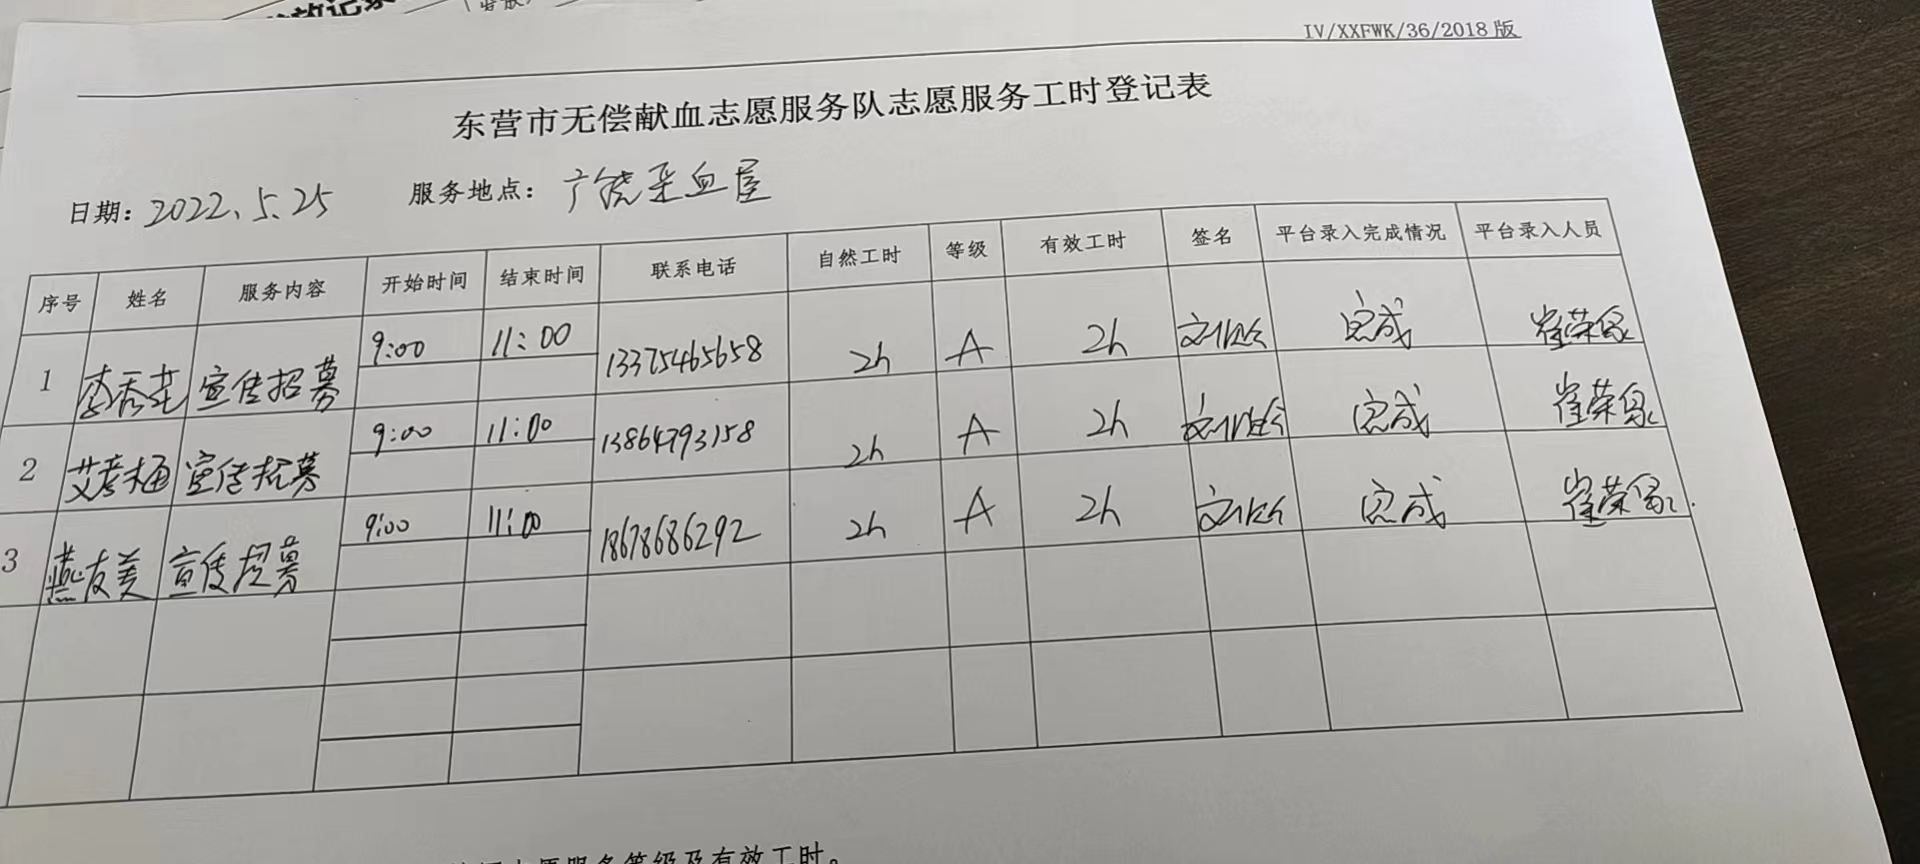 放记录
IV/XXFWK/36/2018版
东营市无偿献血志愿服务队志愿服务工时登记表
日期: 2022.5.25 服务地点: 广饶采血屋
序号 姓名 服务内容 开始时间 结束时间 联系电话 自然工时 等级 有效工时 签名 平台录入完成情况 平台录入人员
1 李秀花 宣传招募 9:00 11:00 13375465658 2h A 2h 完成 崔荣
2 艾孝梅 宣传招募 9:00 11:00 13864793158 2h A 2h 完成 崔荣
3 燕友美 宣传招募 9:00 11:00 18678686292 2h A 2h 完成 崔荣
志愿服务等级及有效工时。